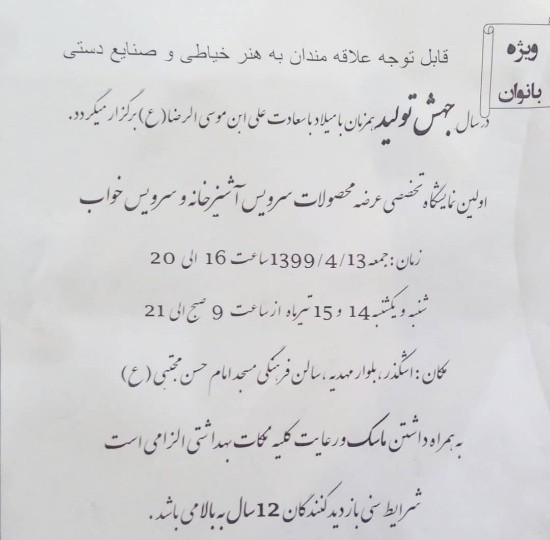 ویژه
بانوان
قابل توجه علاقه مندان به هنر خیاطی و صنایع دستی
در سال جهش تولید همزمان با میلاد با سعادت علی ابن موسی الرضا (ع) برگزار میگردد.
اولین نمایشگاه تخصصی عرضه محصولات سرویس آشپزخانه و سرویس خواب
زمان : جمعه 1399/4/13 ساعت 16 الی 20
شنبه و یکشنبه 14 و 15 تیرماه از ساعت 9 صبح الی 21
مکان : اشکذر ، بلوار مهدیه ، سالن فرهنگی مسجد امام حسن مجتبی (ع)
به همراه داشتن ماسک و رعایت کلیه نکات بهداشتی الزامی است
شرایط سنی بازدید کنندگان 12 سال به بالا می باشد .